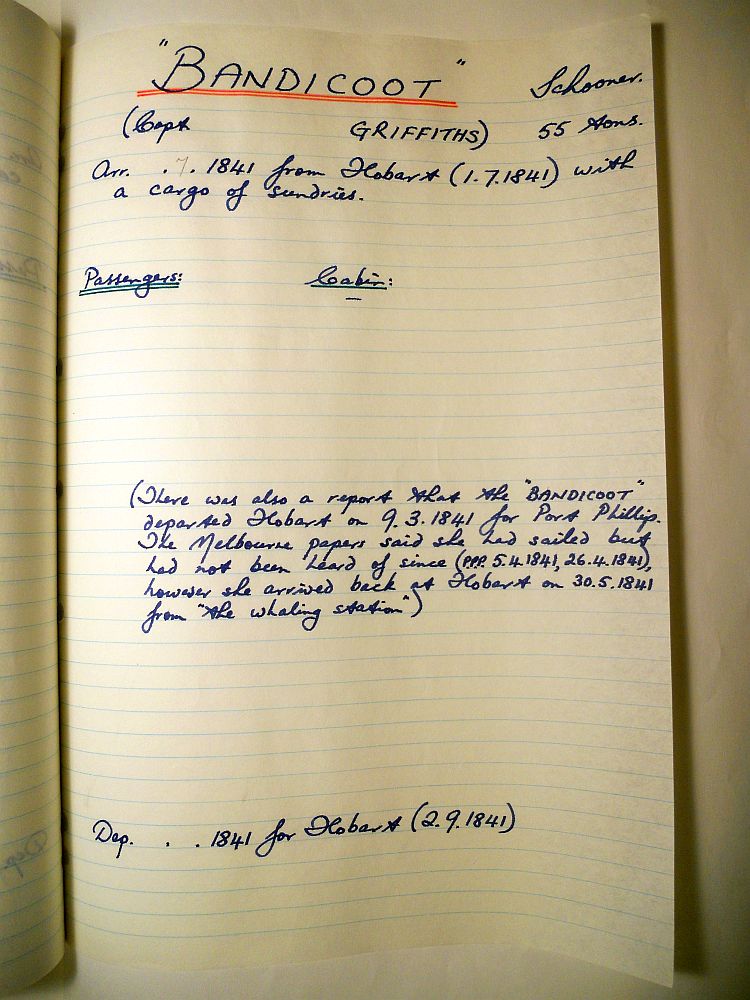 "BANDICOOT" Schooner.
(Capt GRIFFITHS) 55 tons.
Arr. . 7. 1841 from Hobart (1.7.1841) with
a cargo of sundries.
Passengers: Cabin:
–
(There was also a report that the "BANDICOOT"
departed Hobart on 9.3.1841 for Port Phillip.
The Melbourne papers said she had sailed but
had not been heard of since (PPP. 5.4.1841, 26.4.1841),
however she arrived back at Hobart on 30.5.1841
from "the whaling station")
Dep. . . 1841 for Hobart (2.9.1841)